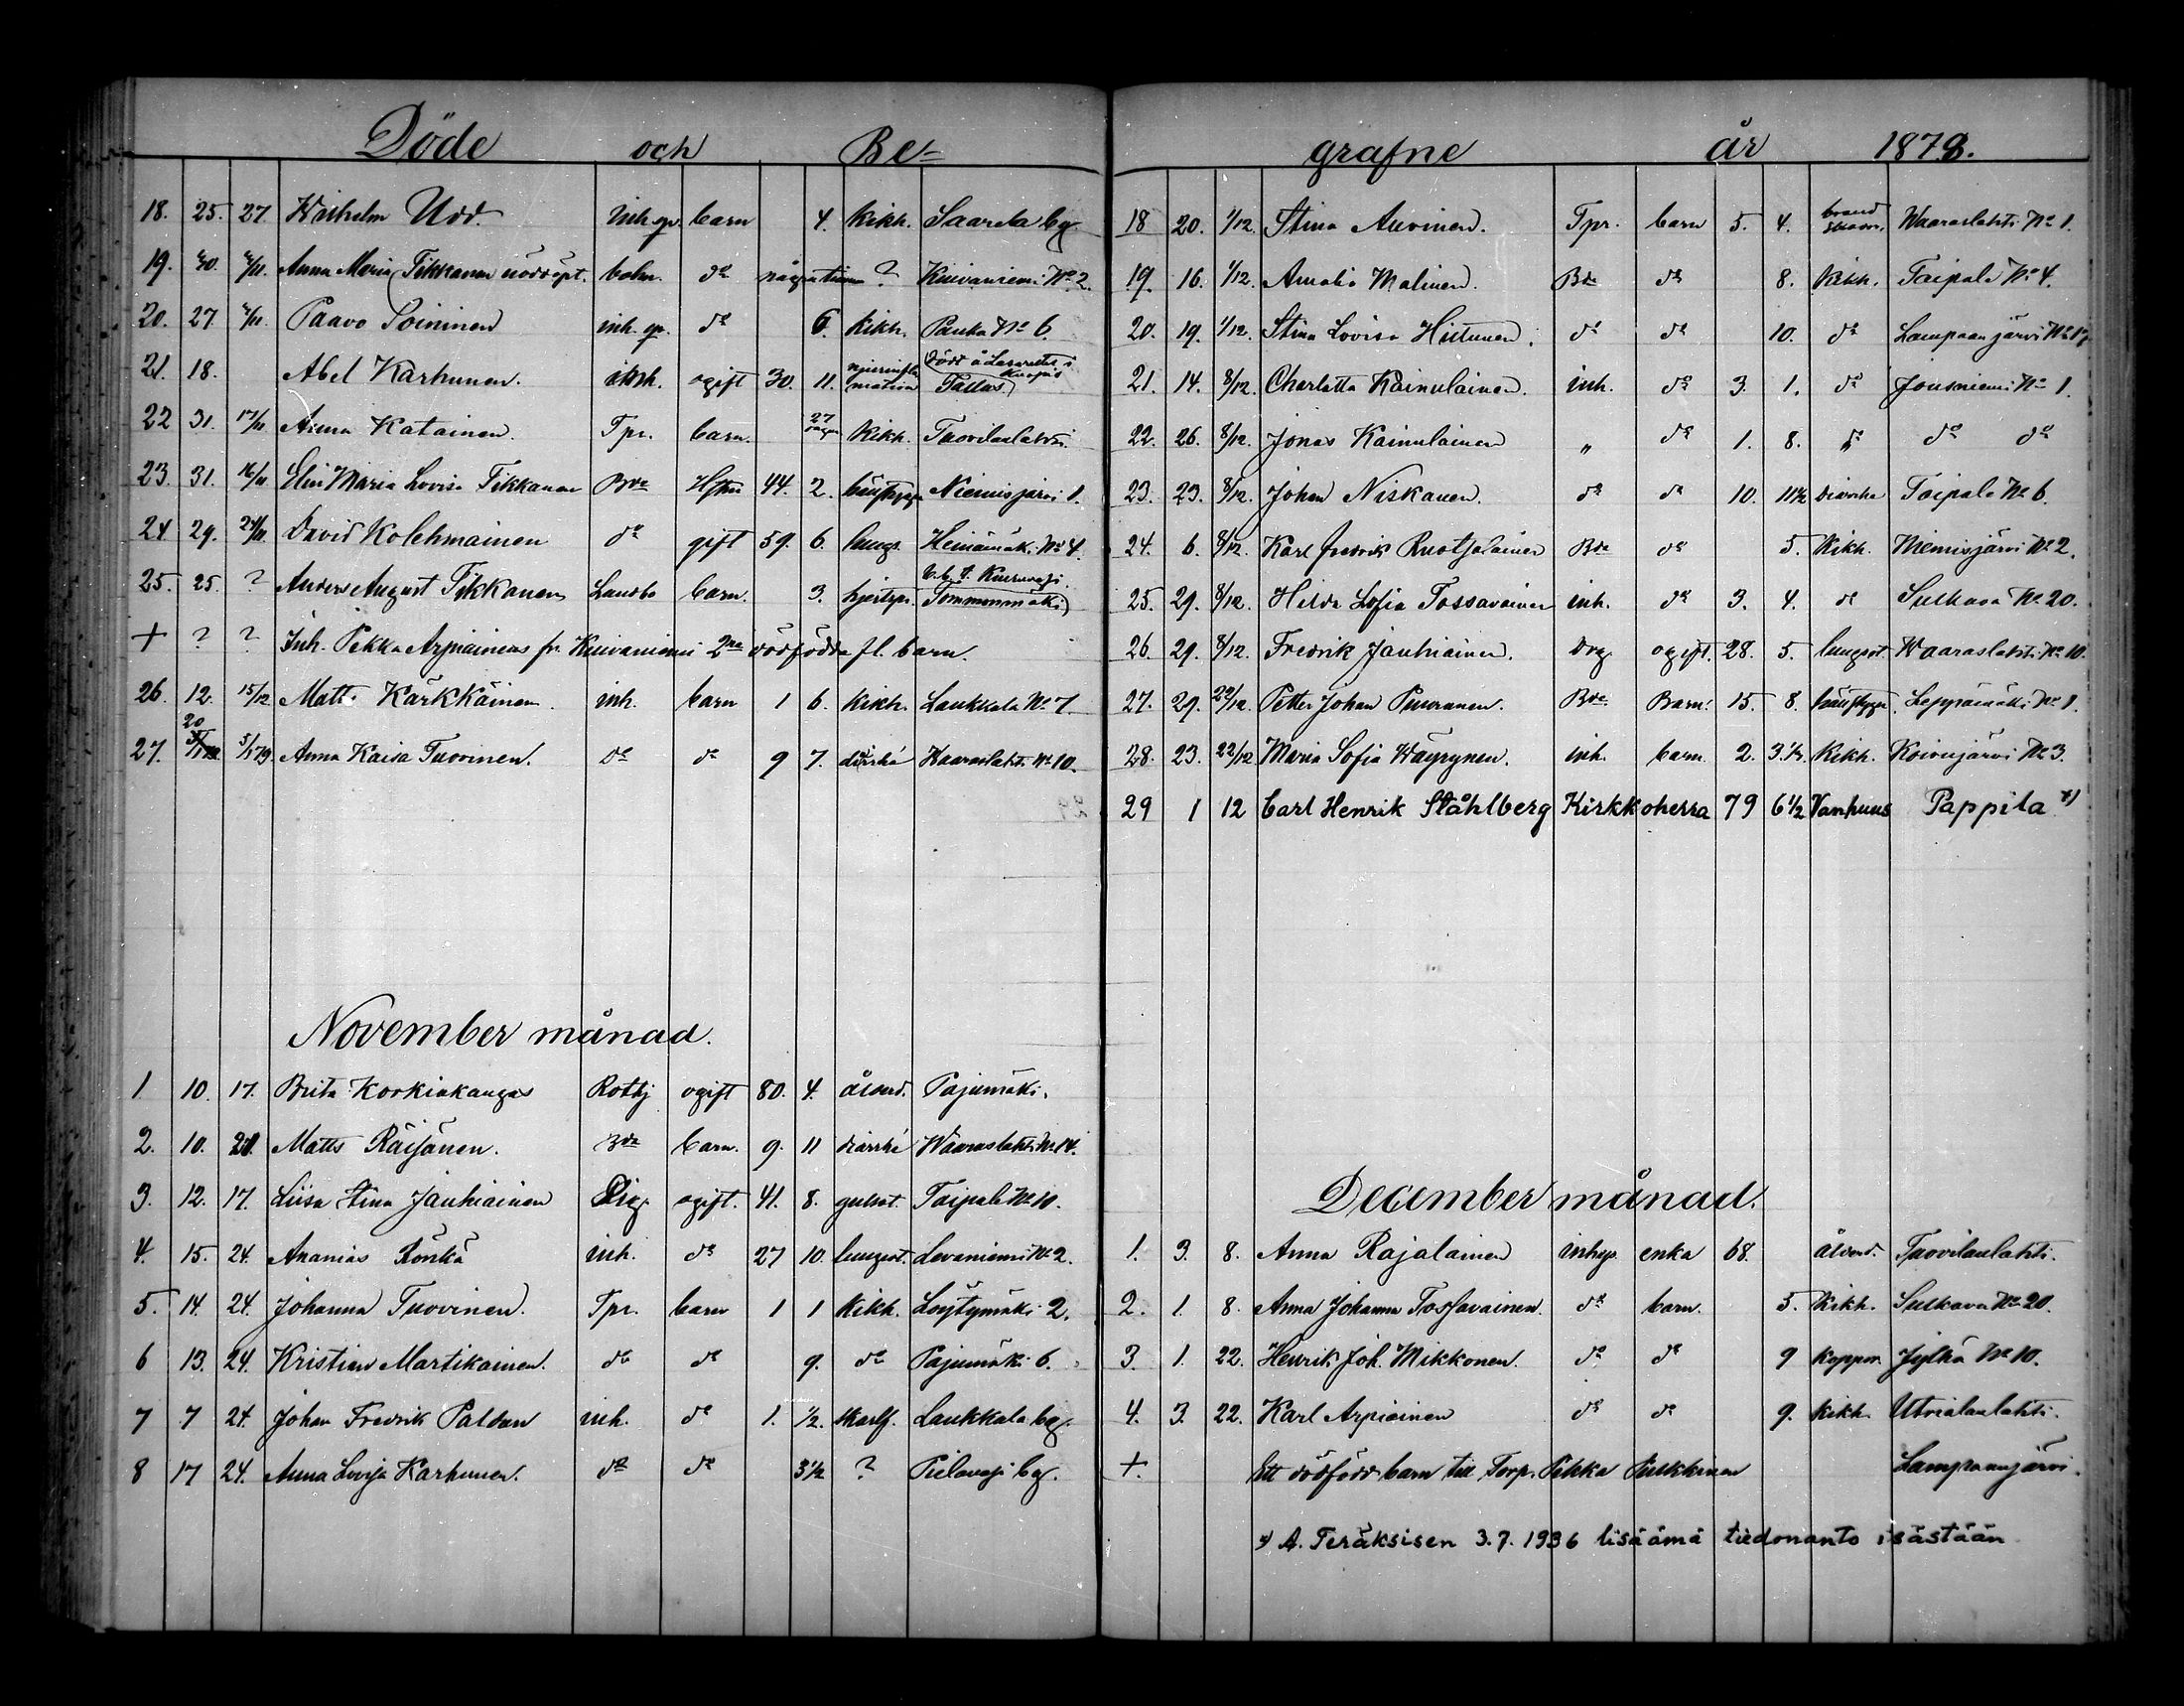 Döde och Be-
18. 25. 27. Wilhelm Udd inh. gr. barn 4. kikh. Saarela by.
19. Anna Maria Tikkanen nöddöpt. bolm. do några timm ? Kuivaniemi No 2.
20. 27. Paavo Soininen inh. gr. do 6. kikh. Panka No 6.
21. 18. Abel Karhunen. inh. ogift 30. 11. njurinflamation (död å Lasarettet i Kuopio) Tallus.
22 31. 17/11 Anna Katainen. Tpr. barn. 27 dagar kikh. Tuovilanlahti.
23. 31. 16/11 Elin Maria Lovisa Tikkanen Bde Hstru 44. 2. Niemisjärvi 1.
24 29. 24/11. David Kolehmainen do gift 59. 6. lungs. Heinämäki No 4.
25. 25. ? Anders August Tikkanen Landbo barn. 3. hjertspr. Tommonmäki
+ ? ? Inh. Pekka Arpiainens fr. Kuivaniemi 2ne dödfödda fl. barn.
26. 12. 15/12 Matts Kärkkäinen. inh. barn 1 6. kikh. Laukkala No 7.
27. 20 5/1 79. Anna Kaisa Tuovinen. do do 9 7. diarrhé Waaraslahti No 10.
November månad.
1 10. 17. Brita Korkiakangas Rothj ogift 80. 4. ålderd. Pajumäki.
2. 10. 20. Matts Räisänen. Bde barn. 9. 11 diarrhé Waaraslahti No 14.
3. 12. 17. Liisa Stina Jauhiainen Drg ogift. 41. 8. gulsot. Taipale No 10.
4. 15. 24. Ananias Rönkä inh. do 27 10. lungsot. Levaniemi No 2.
5. 14. 24. Johanna Tuovinen. Tpr. barn 1 1 kikh. Löytynmäki 2.
6 13. 24. Kristian Martikainen. do do 9. do Pajumäki 6.
7 7 24. Johan Fredrik Paldan inh. do 1. 1/2. skarlf. Laukkala by.
8 17 24. Anna Lovisa Karhunen. do do 3 1/2 ? Pielavesi by.
grafne år 1878.
18 20. 1/12. Stina Auvinen. Tpr. barn 5. 4. brandskador. Waaraslahti No 1.
19. 16. 1/12. Amalia Malinen. Bde do 8. Kikh. Taipale No 4.
20. 19. 1/12. Stina Lovisa Hiltunen. do do 10. do Lampaanjärvi
21. 14. 8/12. Charlotta Kainulainen. inh. do 3. 1. do Jousniemi No 1.
22. 26. 8/12. Jonas Kainulainen " do 1. 8. do do do
23. 23. 8/12. Johan Niskanen. do do 10. 11 1/2 diarrhe Taipale No 6.
24. 6. 8/12. Karl Fredrik Ruotsalainen Bde do 5. Kikh. Niemisjärvi No 2.
25. 29. 8/12. Hilda Sofia Tossavainen inh. do 3. 4. do Sulkava No 20.
26. 29. 8/12. Fredrik Jauhiainen. Drg ogift. 28. 5. lungsot Waaraslahti No 10.
27. 29. 22/12. Petter Johan Puuranen. Bde Barn. 15. 8. Leppämäki No 1.
28. 23. 22/12 Maria Sofia Wäyrynen. inh. barn. 2. 3 1/2. Kikh. Koivujärvi No 3.
29 1 12 Carl Henrik Ståhlberg Kirkkoherra 79 6 1/2 Vanhuus Pappila x)
December månad.
1. 3. 8. Anna Rajalainen inhys. enka 68. ålderd. Tuovilanlahti.
2. 1. 8. Anna Johanna Tossavainen. do barn. 5. Kikh. Sulkava No 20.
3. 1. 22. Henrik Joh. Mikkonen. do do 9 koppor. Jylhä No 10.
4. 3. 22. Karl Arpiainen do do 9. kikh. Utrialanlahti.
+. Ett dödfödt barn till Torp. Pekka Pulkkinen Lampaanjärvi.
x) A. Teräksisen 3.7.1936 lisäämä tiedonanto isästään